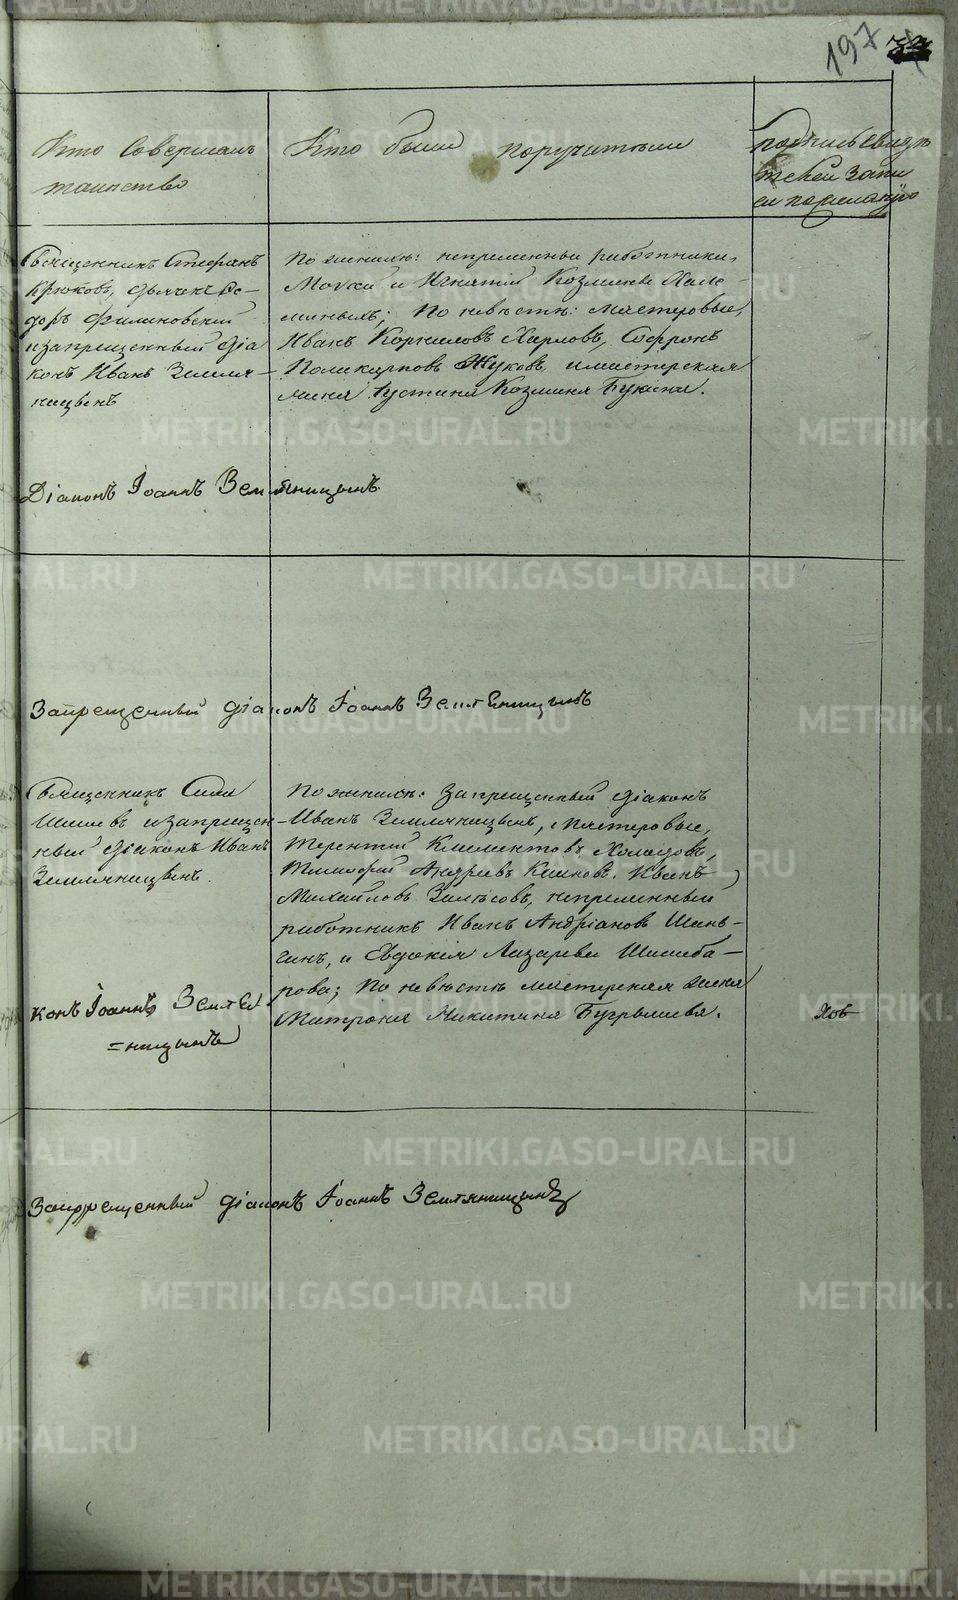 197
Кто Совершалъ
таинство
Кто были поручители
подпись свидѣ
телей запи
си по желанію
Священникъ Стефанъ
Крюковъ, дьячекъ Ѳе-
доръ Филиновскій
и запрещенный діа
конъ Иванъ Земля-
ницынъ
По женихѣ: непременныи работники,
и Игнатій Козмины
по невѣстѣ: мастеровые,
Иванъ Корниловъ Харловъ, Софронъ
Поликарповъ Жуковъ, и мастерская
жена Устинья Козмина Букина.
Діаконъ Іоаннъ Земляницынъ
Запрещенный діаконъ Іоаннъ Земляницынъ
Священникъ Сила
и запрещен-
ный діаконъ Иванъ
Земляницынъ.
По женихѣ: запрещенный діаконъ
Иванъ Земляницынъ, мастеровые,
Терентій Климентовъ Холодовъ,
Тимофей Андреевъ Иванъ
Михайловъ непременный
работникъ Иванъ Андріановъ Шань-
гинъ, и Евдокія Лазарева Шишеба-
рова; По невѣстѣ мастерская жена
Матрона Никитина Бугрышева.
конъ Іоаннъ Земля
=ницынъ
Запрещенный діаконъ Іоаннъ Земляницынъ
METRIKI.GASO-URAL.RU